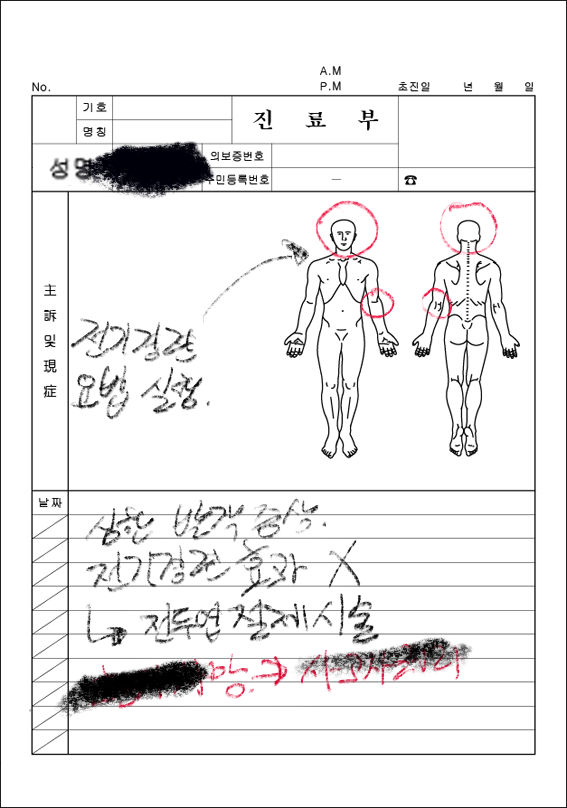 A.M
No. P.M 초진일 년 월 일
기호
명칭
진 료 부
성명 의보증번호
주민등록번호 — ☎
主訴 및 現症
전기경련
요법 실행.
날짜
심한 발작 증상.
전기경련 효과 X
↳ 전두엽 절제 시술
망 → 사고사처리